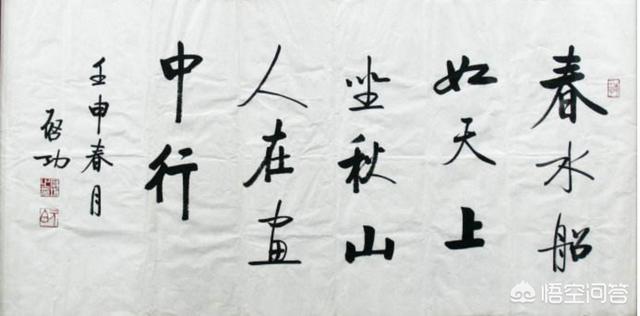 春水船
如天上
坐秋山
人在画
中行
壬申春月
启功
悟空问答